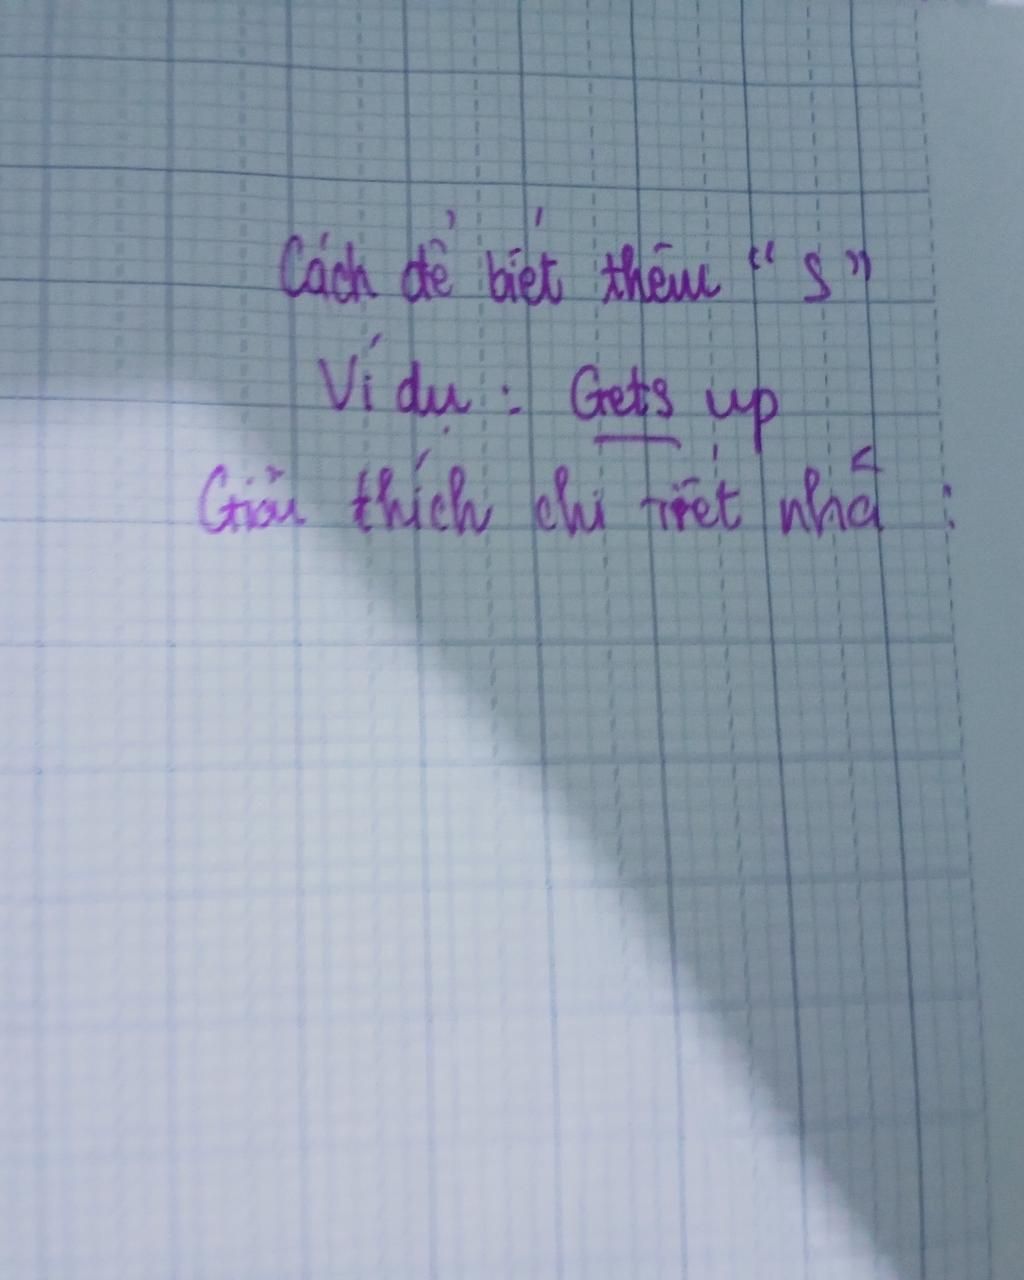 Cách để biết thêm “ S ”
Ví dụ : Gets up
Giải thích chi tiết nhá :